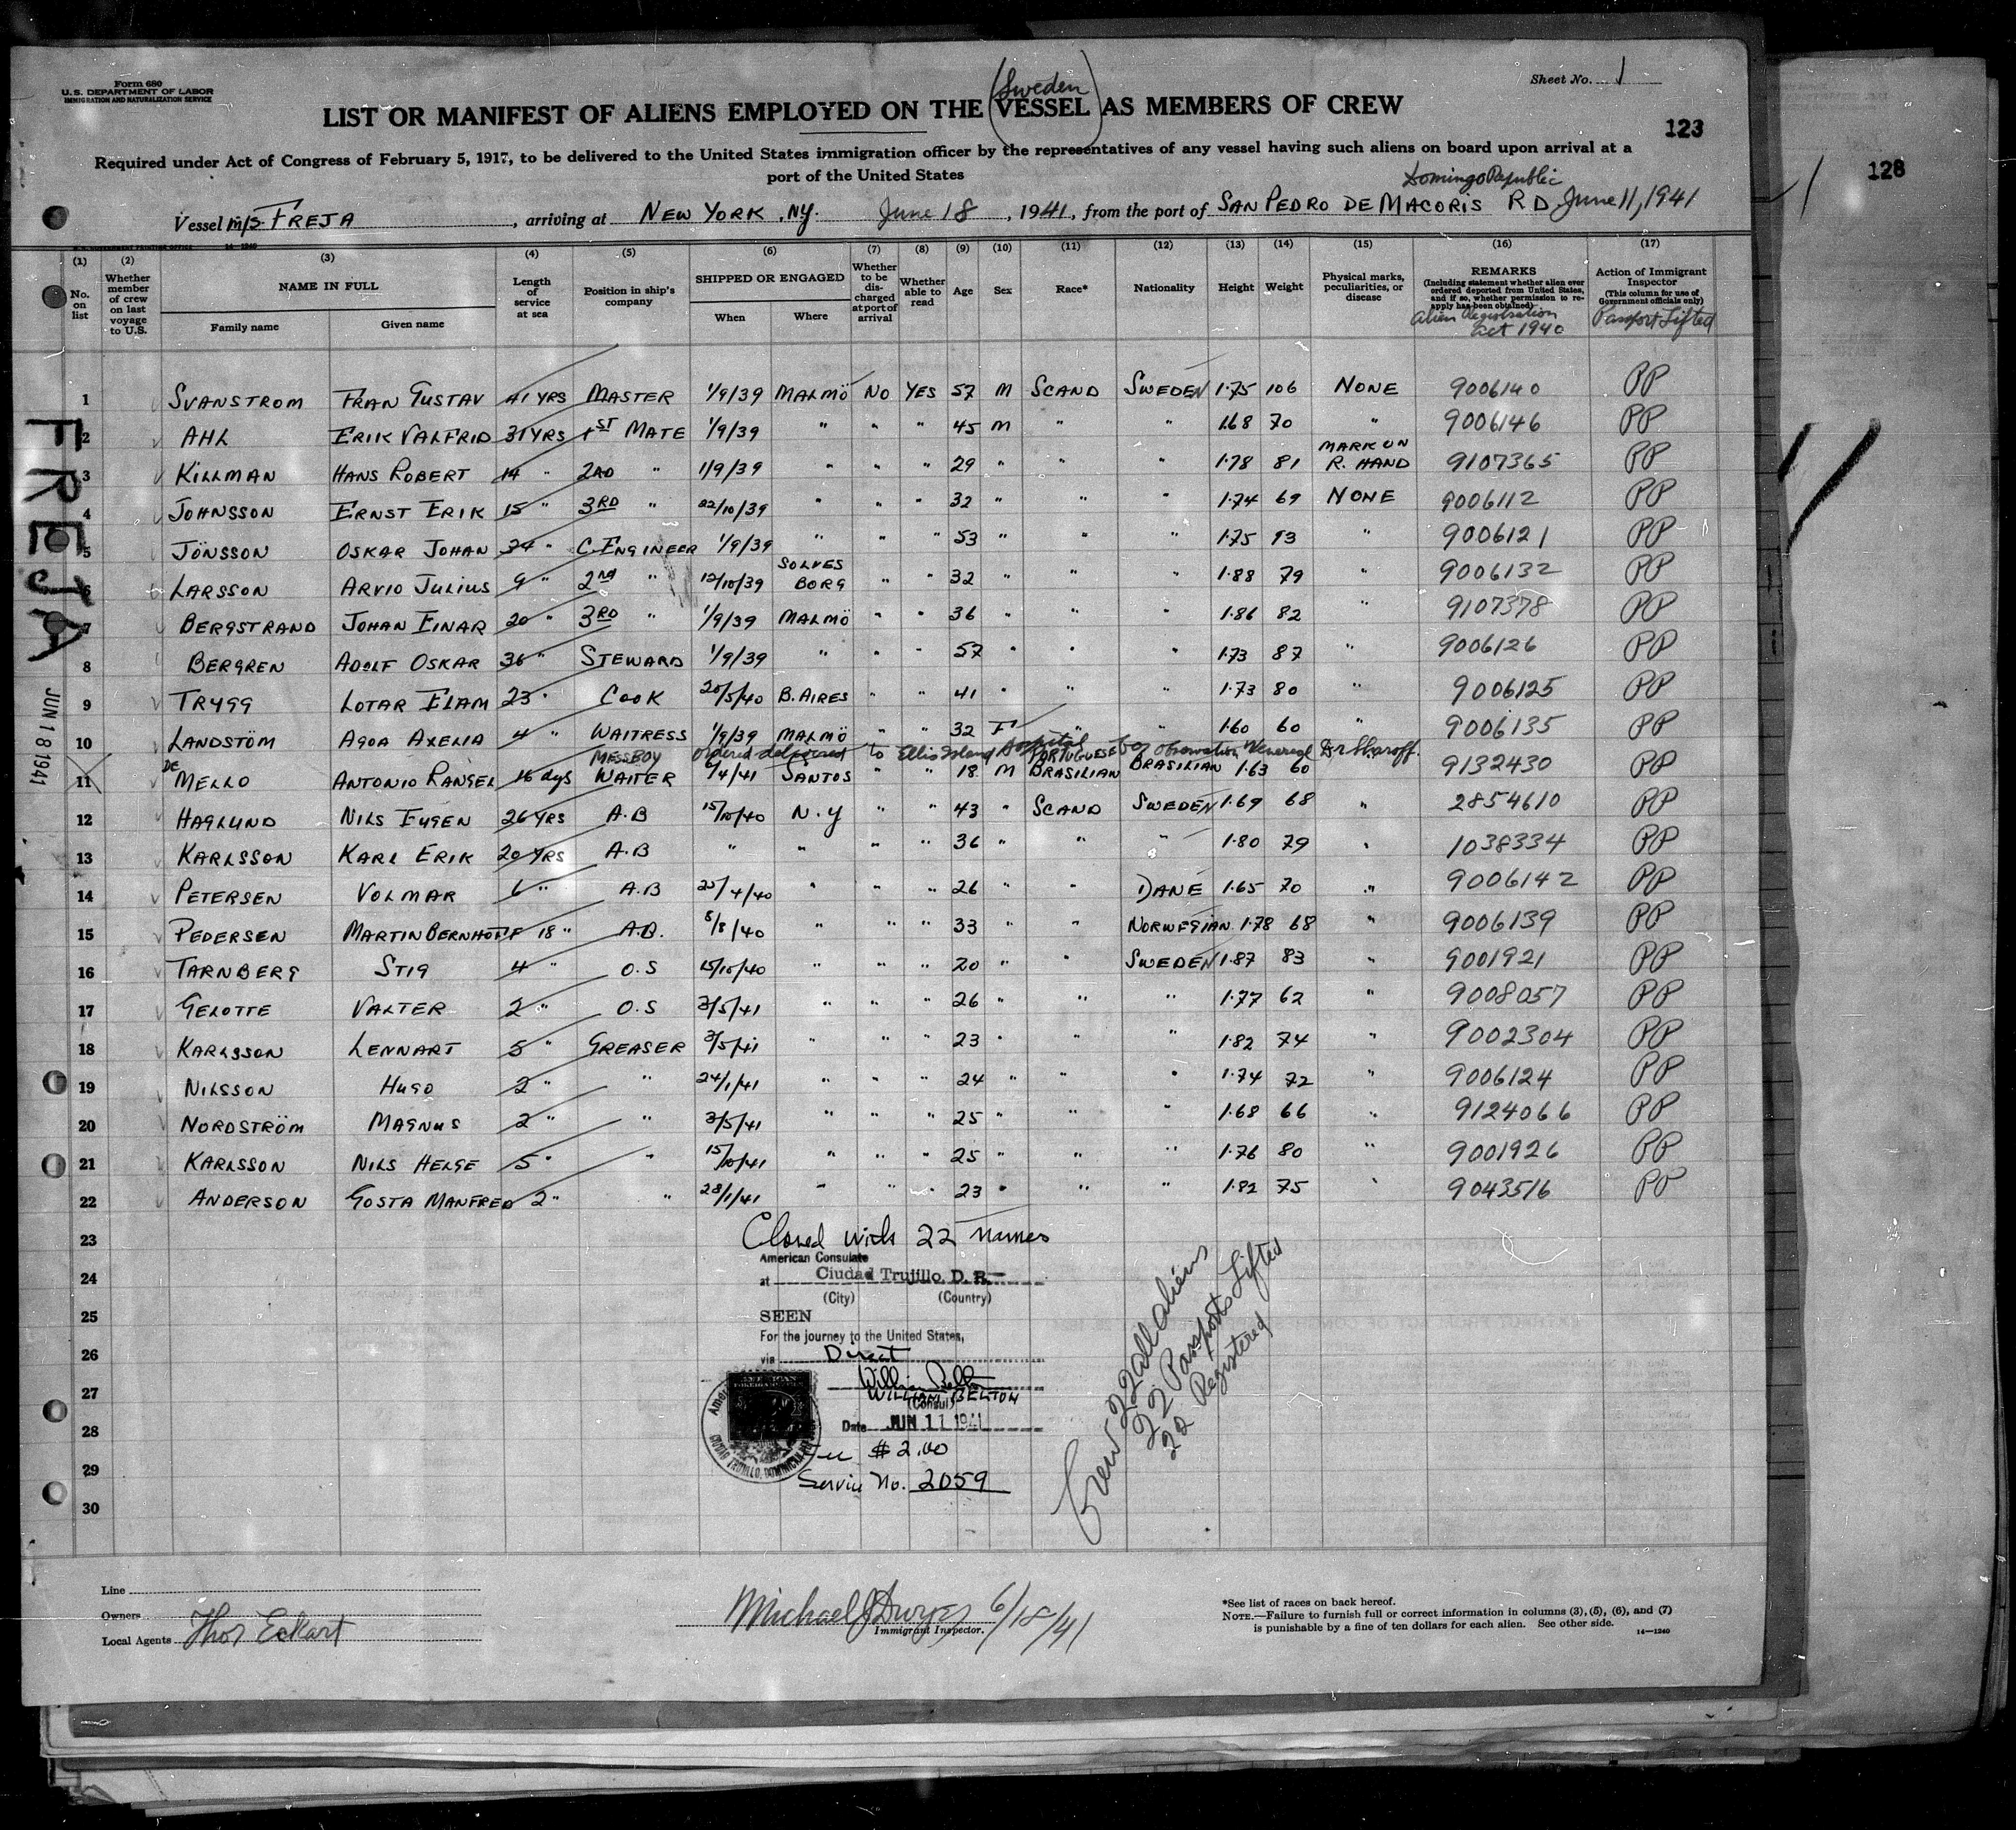 Form 680
U.S. DEPARTMENT OF LABOR
IMMIGRATION AND NATURALIZATION SERVICE
Sheet No. 1
(Sweden)
LIST OR MANIFEST OF ALIENS EMPLOYED ON THE VESSEL AS MEMBERS OF CREW
123
128
Required under Act of Congress of February 5, 1917, to be delivered to the United States immigration officer by the representatives of any vessel having such aliens on board upon arrival at a
port of the United States
Domingo Republic
Vessel M/S FREJA, arriving at NEW YORK, NY. June 18, 1941, from the port of SAN PEDRO DE MACORIS R D. June 11, 1941
(1) (2) (3) (4) (5) (6) (7) (8) (9) (10) (11) (12) (13) (14) (15) (16) (17)
No. on list
Whether member of crew on last voyage to U.S.
NAME IN FULL
Family name
Given name
Length of service at sea
Position in ship's company
SHIPPED OR ENGAGED
When
Where
Whether to be discharged at port of arrival
Whether able to read
Age
Sex
Race*
Nationality
Height
Weight
Physical marks, peculiarities, or disease
REMARKS
(Including statement whether alien ever ordered deported from United States, and if so, whether permission to reapply has been obtained)
Alien Registration
Act 1940
Action of Immigrant Inspector
(This column for use of Government officials only)
Passport Lifted
1 SVANSTROM FRAN GUSTAV 41 YRS MASTER 1/9/39 MALMÖ NO YES 57 M SCAND SWEDEN 1.75 106 NONE 9006140 PP
2 AHL ERIK VALFRID 31 YRS 1ST MATE 1/9/39 " " " 45 M " " 1.68 70 " 9006146 PP
3 KILLMAN HANS ROBERT 14 " 2ND " 1/9/39 " " " 29 " " " 1.78 81 MARK ON R. HAND 9107365 PP
4 JOHNSSON ERNST ERIK 15 " 3RD " 22/10/39 " " 32 " " " 1.74 69 NONE 9006112 PP
5 JÖNSSON OSKAR JOHAN 34 " C. ENGINEER 1/9/39 " " " 53 " " " 1.75 93 " 9006121 PP
6 LARSSON ARVID JULIUS 9 " 2ND " 12/10/39 SOLVESBORG " " 32 " " " 1.88 79 " 9006132 PP
7 BERGSTRAND JOHAN EINAR 20 " 3RD " 1/9/39 MALMÖ " " 36 " " " 1.86 82 " 9107378 PP
8 BERGREN ADOLF OSKAR 36 " STEWARD 1/9/39 " " " 57 " " " 1.73 87 " 9006126 PP
9 TRYGG LOTAR ELAM 23 " COOK 20/5/40 B. AIRES " " 41 " " " 1.73 80 " 9006125 PP
10 LANDSTÖM AGDA AXELIA 4 " WAITRESS 1/9/39 MALMÖ " " 32 F " " 1.60 60 " 9006135 PP
Ordered delivered to Ellis Island Hospital for Observation Venereal Dr Sharoff.
11 DE MELLO ANTONIO RANGEL 16 dys MESSBOY WAITER 6/4/41 SANTOS " " 18 M PORTUGUESE BRASILIAN BRASILIAN 1.63 60 " 9132430 PP
12 HAGLUND NILS EUGEN 26 YRS A.B 15/10/40 N.Y " " 43 " SCAND SWEDEN 1.69 68 " 2854610 PP
13 KARLSSON KARL ERIK 20 YRS A.B " " " " 36 " " " 1.80 79 " 1038334 PP
14 PETERSEN VOLMAR 6 " A.B 20/4/40 " " " 26 " " DANE 1.65 70 " 9006142 PP
15 PEDERSEN MARTIN BERNHOFF 18 " A.B. 5/8/40 " " " 33 " " NORWEGIAN 1.78 68 " 9006139 PP
16 TARNBERG STIG 4 " O.S 15/10/40 " " " 20 " " SWEDEN 1.87 83 " 9001921 PP
17 GELOTTE VALTER 2 " O.S 3/5/41 " " " 26 " " " 1.77 62 " 9008057 PP
18 KARLSSON LENNART 5 " GREASER 3/5/41 " " " 23 " " " 1.82 74 " 9002304 PP
19 NILSSON HUGO 2 " " 24/1/41 " " " 24 " " " 1.74 72 " 9006124 PP
20 NORDSTRÖM MAGNUS 2 " " 3/5/41 " " " 25 " " " 1.68 66 " 9124066 PP
21 KARLSSON NILS HELGE 5 " " 15/10/41 " " " 25 " " " 1.76 80 " 9001926 PP
22 ANDERSON GOSTA MANFRED 2 " " 28/1/41 " " " 23 " " " 1.82 75 " 9043516 PP
23
24
25
26
27
28
29
30
FREJA
JUN 18 1941
Closed with 22 names
American Consulate
at Ciudad Trujillo, D. R.
(City) (Country)
SEEN
For the journey to the United States,
via Direct
William Belton
WILLIAM BELTON
(Consul)
Date JUN 11 1941
Fee $2.00
Service No. 2059
Crew 22 all aliens
22 Passports Lifted
22 Registered
Line
Owners
Local Agents Thor Eckart
Michael J Dwyer 6/18/41
Immigrant Inspector.
*See list of races on back hereof.
NOTE.—Failure to furnish full or correct information in columns (3), (5), (6), and (7)
is punishable by a fine of ten dollars for each alien. See other side.
14—1240